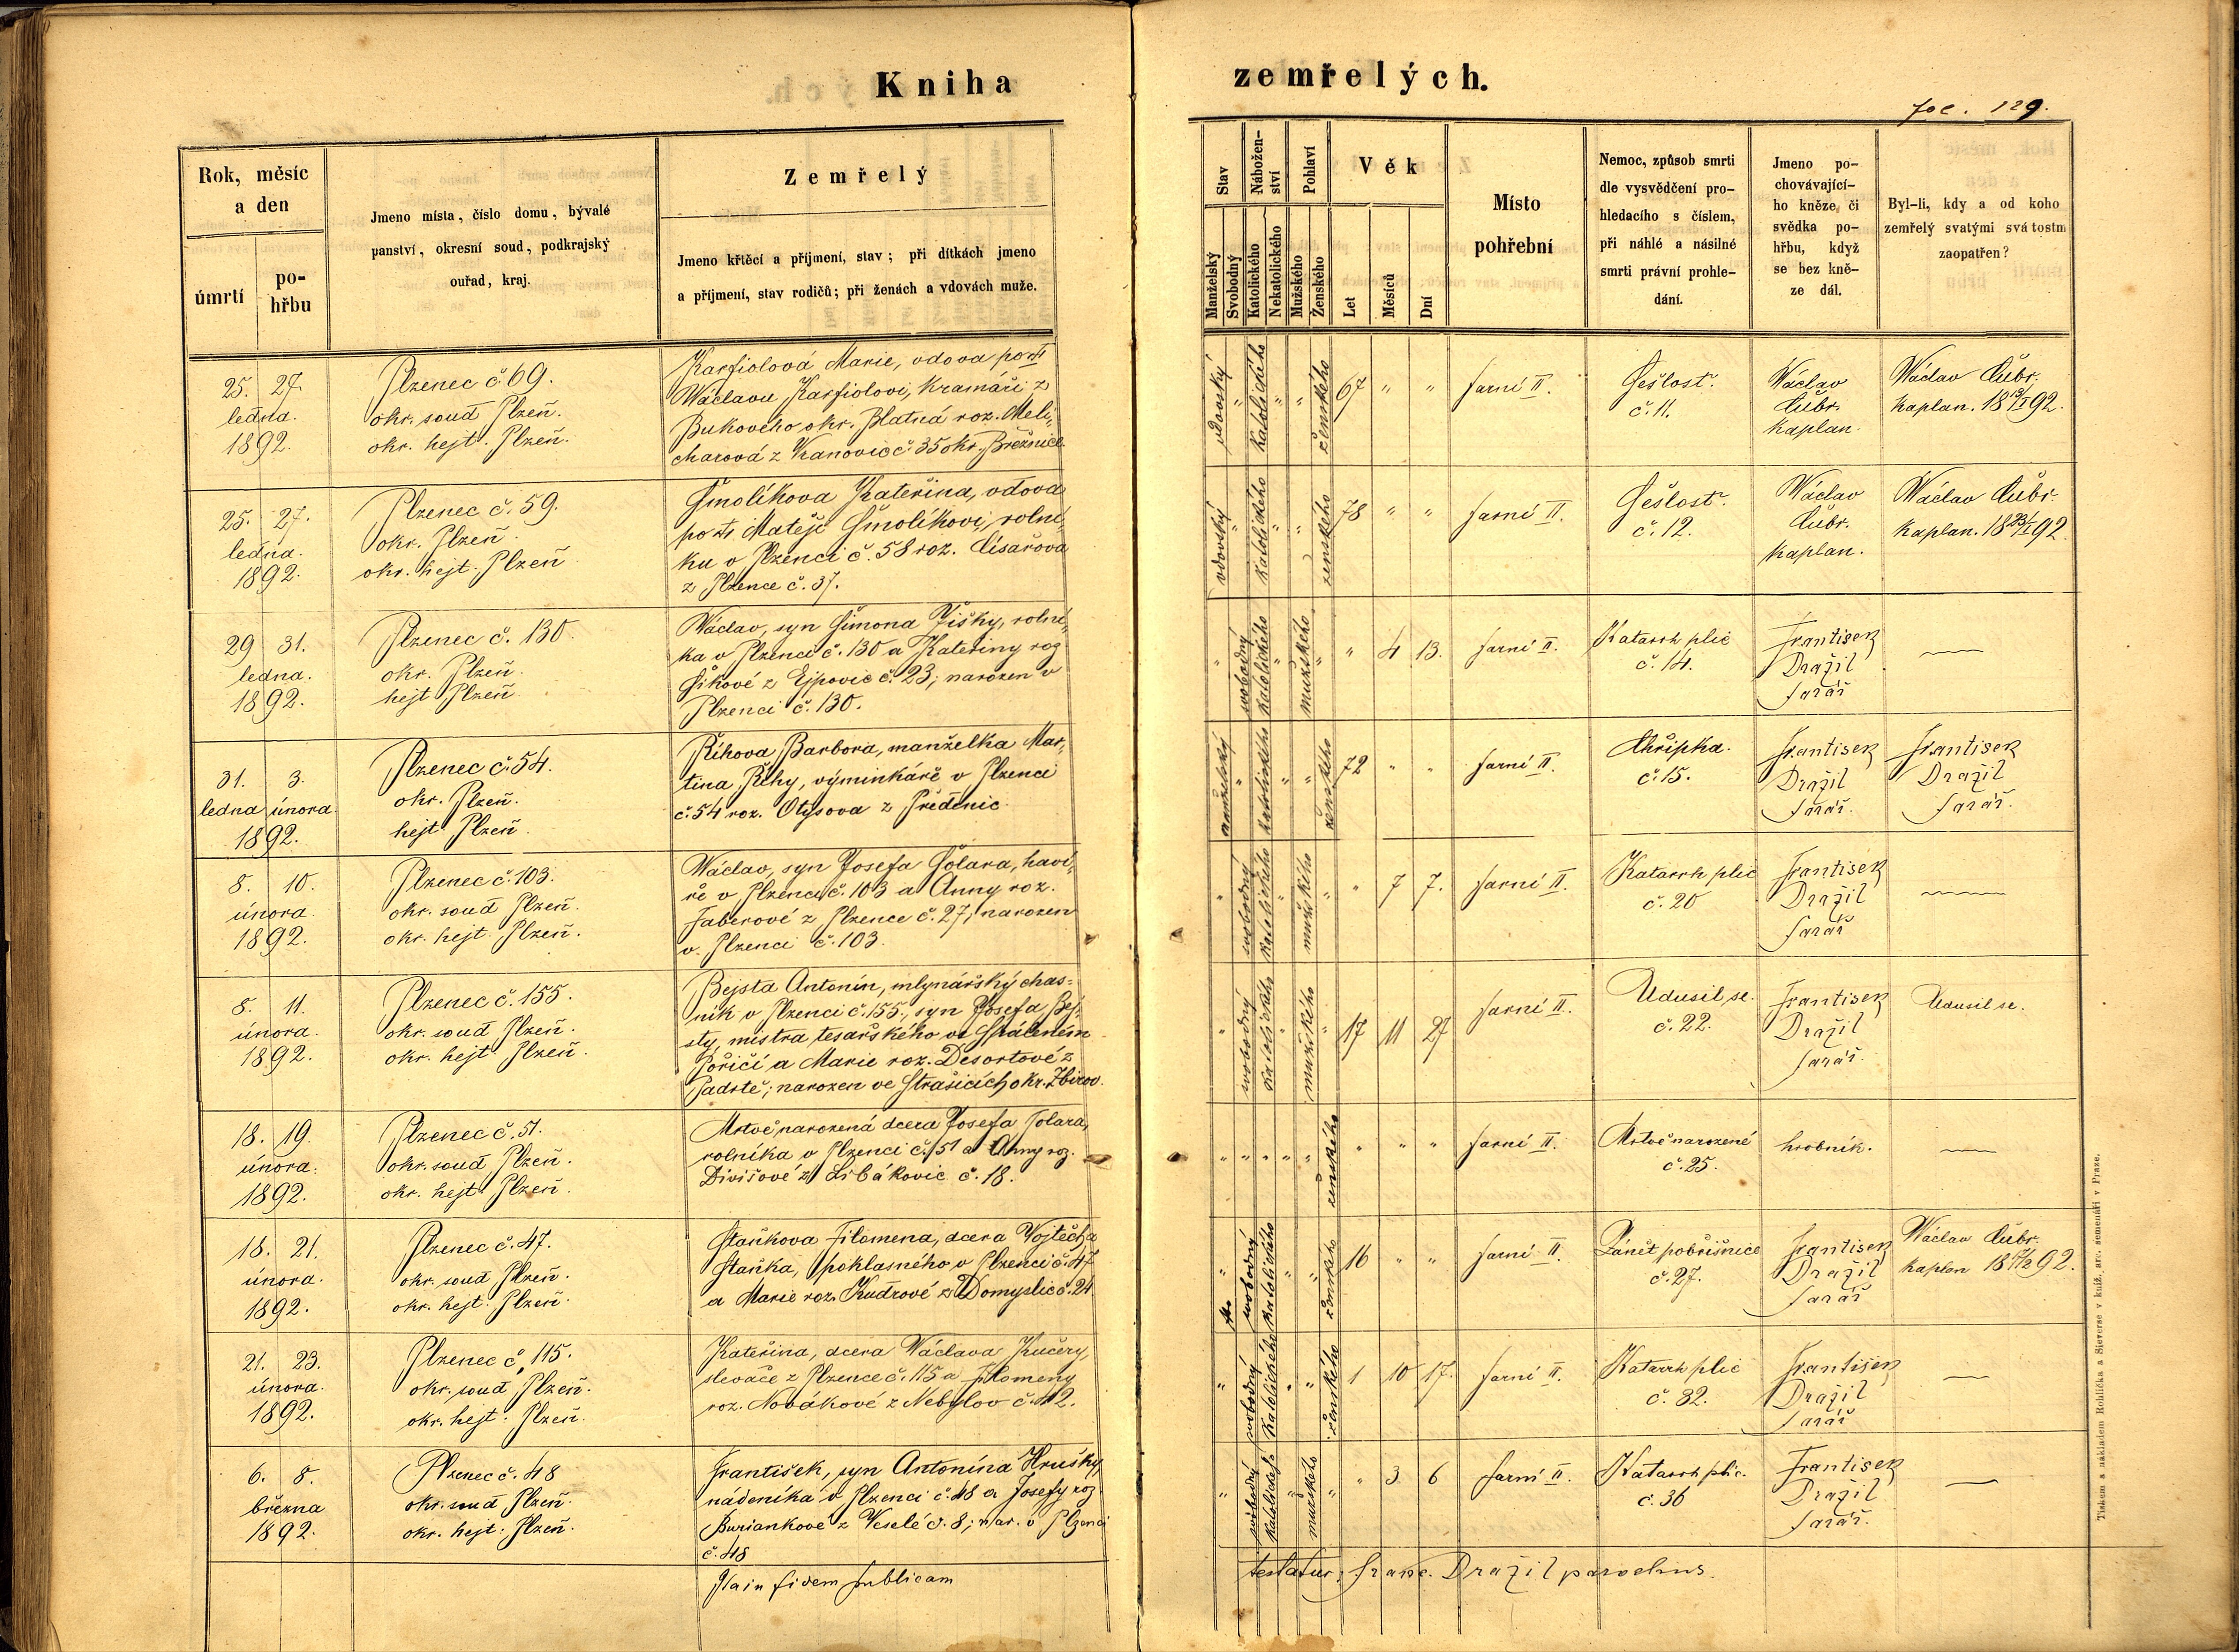 Kniha
zemřelých.
fol. 129.
Rok, měsíc
a den
úmrtí
po-
hřbu
Jmeno místa, číslo domu, bývalé
panství, okresní soud, podkrajský
ouřad, kraj.
Zemřelý
Jmeno křtěcí a příjmení, stav; při dítkách jmeno
a příjmení, stav rodičů; při ženách a vdovách muže.
Stav
Manželský
Svobodný
Nábožen-
ství
Katolického
Nekatolického
Pohlaví
Mužského
Ženského
Věk
Let
Měsíců
Dní
Místo
pohřební
Nemoc, způsob smrti
dle vysvědčení pro-
hledacího s číslem,
při náhlé a násilné
smrti právní prohle-
dání.
Jmeno po-
chovávající-
ho kněze, či
svědka po-
hřbu, když
se bez kně-
ze dál.
Byl-li, kdy a od koho
zemřelý svatými svátostm
zaopatřen?
25. 27.
ledna.
1892.
Plzenec č. 69.
okr. soud Plzeň.
okr. hejt. Plzeň.
Karfiolová Marie, vdova po
Václavu Karfiolovi, kramáři z
Bukového okr. Blatná roz. Meli-
charová z Vranovic č. 35 okr. Březnice
vdovský " katolického " " ženského 67 " "
farní II.
Sešlost.
č. 11.
Václav
Čubr.
kaplan.
Václav Čubr.
kaplan. 18 19/I 92.
25. 27.
ledna.
1892.
Plzenec č. 59.
okr. Plzeň.
okr. hejt. Plzeň
Smolíkova Kateřina, vdova
po Matěji Smolíkovi, rolní-
ku v Plzenci č. 58 roz. Císařova
z Plzence č. 37.
vdovský " katolického " " ženského 78 " "
farní II.
Sešlost.
č. 12.
Václav
Čubr.
kaplan.
Václav Čubr.
kaplan. 18 23/I 92.
29 31.
ledna.
1892.
Plzenec č. 130.
okr. Plzeň.
hejt Plzeň.
Václav, syn Šimona Žišky, rolní-
ka v Plzenci č. 130 a Kateřiny roz
Šikové z Ejpovic č. 23; narozen v
Plzenci č. 130.
" svobodný katolického " mužského " " 4 13.
farní II.
Katarrh plic
č. 14.
Frantisek
Dražil
farář
31. 3.
ledna února.
1892.
Plzenec č. 54.
okr. Plzeň.
hejt Plzeň.
Říhova Barbora, manželka Mar-
tina Říhy, výminkáře v Plzenci
č. 54 roz. Otysova z Předenic.
manželský " katolického " " ženského 72 " "
farní II.
Chřipka.
č. 15.
Frantisek
Dražil
farář.
Frantisek
Dražil
farář.
8. 10.
února.
1892.
Plzenec č. 103.
okr. soud Plzeň.
okr. hejt. Plzeň.
Václav, syn Josefa Šolara, haví-
ře v Plzenci č. 103 a Anny roz.
Faberové z Plzence č. 27, narozen
v Plzenci č. 103.
" svobodný katolického " mužského " " 7 7.
farní II.
Katarrh plic
č. 20
Frantisek
Dražil
farář
8. 11.
února.
1892.
Plzenec č. 155.
okr. soud Plzeň.
okr. hejt. Plzeň.
Bejsta Antonín, mlynářský chas-
ník v Plzenci č. 155, syn Josefa Bej-
sty, mistra tesařského ve Spáleném
Poříčí a Marie roz. Desortové z
Padrtě; narozen ve Strašicích okr. Zbirov.
" svobodný katolického " mužského " 17 11 27
farní II.
Udusil se.
č. 22.
Frantisek
Dražil
farář.
Udusil se.
18. 19.
února.
1892.
Plzenec č. 51.
okr. soud Plzeň.
okr. hejt. Plzeň.
Mrtvě narozená dcera Josefa Tolara,
rolníka v Plzenci č. 51 a Anny roz.
Divišové z Libákovic č. 18.
" " " " " ženského " " "
farní II.
Mrtvě narozené
č. 25.
hrobník.
18. 21.
února.
1892.
Plzenec č. 47.
okr. soud Plzeň.
okr. hejt. Plzeň.
Staňkova Filomena, dcera Vojtěcha
Staňka, poklasného v Plzenci č. 47
a Marie roz. Kudrové z Domyslic č. 24.
" svobodný katolického " " ženského 16 " "
farní II.
Zánět pobřišnice
č. 27.
Frantisek
Dražil
farář
Václav Čubr.
kaplan
21. 23.
února.
1892.
Plzenec č. 115.
okr. soud Plzeň.
okr. hejt. Plzeň.
Kateřina, dcera Václava Kučery,
slevače z Plzence č. 115 a Filomeny
roz. Novákové z Nebylov č. 42.
" svobodný katolického " " ženského 1 10 17.
farní II.
Katarrh plic
č. 32.
Frantisek
Dražil
farář
6. 8.
března
1892.
Plzenec č. 48
okr. soud Plzeň.
okr. hejt. Plzeň.
František, syn Antonína Hrušky,
nádeníka v Plzenci č. 48 a Josefy roz
Buriankové z Veselé č. 8; nar. v Plzenci
č. 48
" svobodný katolického " mužského " " 3 6
farní II.
Katarrh plic.
č. 36
Frantisek
Dražil
farář.
fidem publicam
testatur: Franc. Dražil parochus.
Tiskem a nákladem Rohlíčka a Sieverse v kníž. arc. semenáři v Praze.